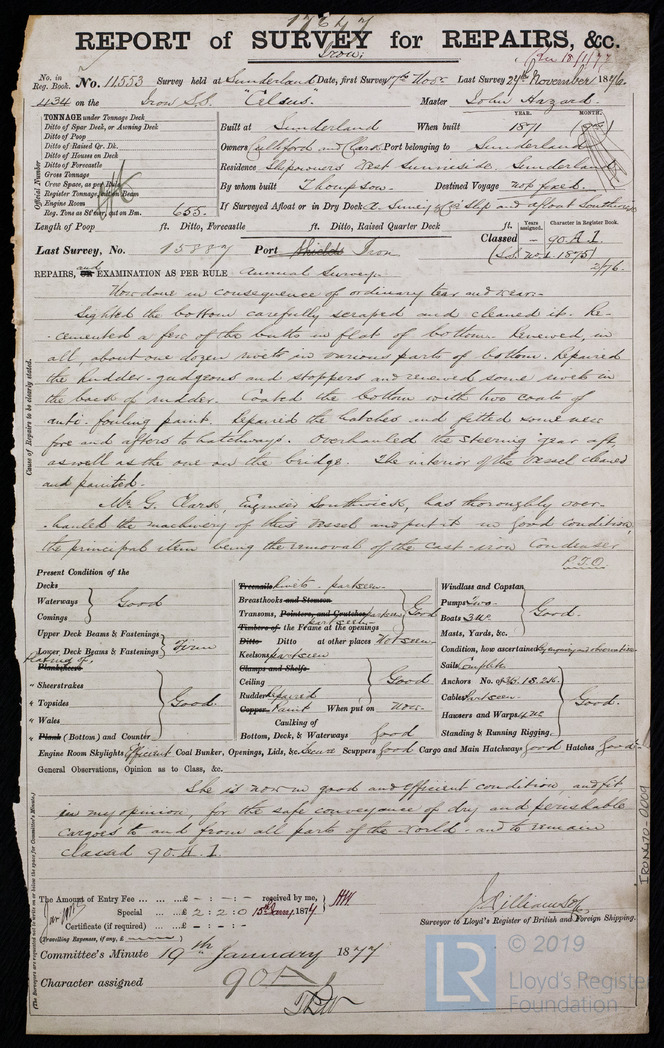 17647
REPORT of SURVEY for REPAIRS, &c.
Iron
No. in Reg. Book. No. 11553 Survey held at Sunderland Date, first Survey 17th Novr Last Survey 24th November 1876.
434 on the Iron S.S. "Celsus". Master John Hazard.
TONNAGE under Tonnage Deck
Ditto of Spar Deck, or Awning Deck
Ditto of Poop
Ditto of Raised Qr. Dk.
Ditto of Houses on Deck
Ditto of Forecastle
Gross Tonnage
Crew Space, as per Rule
Register Tonnage, cut on Beam
Engine Room
Reg. Tons as St'mer, cut on Bm. 655.
Official Number
YEAR. MONTH.
Built at Sunderland When built 1871
Owners Culliford and Clark Port belonging to Sunderland
Residence Shipowners West Sunniside, Sunderland
By whom built Thompson. Destined Voyage not fixed.
If Surveyed Afloat or in Dry Dock Slip and afloat Southwick
Length of Poop ft. Ditto, Forecastle ft. Ditto, Raised Quarter Deck ft.
Years assigned. Character in Register Book.
Classed — 90.A.1.
(S.S. No.1. 1875)
2/76.
Last Survey, No. 15887 Port Shields Iron
REPAIRS, and OR EXAMINATION AS PER RULE Annual Survey.
Now done in consequence of ordinary tear and wear.
Sighted the bottom carefully scraped and cleaned it. Re-
-cemented a few of the butts in flat of bottom. Renewed, in
all, about one dozen rivets in various parts of bottom. Repaired
the Rudder-gudgeons and stoppers and renewed some rivets in
the back of rudder. Coated the bottom with two coats of
anti-fouling paint. Repaired the hatches and fitted some new
fore and afters to hatchways. Overhauled the steering gear aft,
as well as the one on the bridge. The interior of the Vessel cleaned
and painted.
Mr. G. Clark, Engineer Southwick, has thoroughly over-
-hauled the machinery of this Vessel and put it in good condition,
the principal item being the removal of the cast-iron Condenser
P.T.O.
Cause of Repairs to be clearly stated.
Present Condition of the
Decks
Waterways Good
Comings
Upper Deck Beams & Fastenings
Lower Deck Beams & Fastenings Firm
Plating of.
Planksheer
" Sheerstrakes
" Topsides Good
" Wales
" Plank (Bottom) and Counter
Treenails Rivets part seen.
Breasthooks and Stemson
Transoms, Pointers, and Crutches part seen Good
Timbers of the Frame at the openings part seen
Ditto Ditto at other places Not seen
Keelsons part seen
Clamps and Shelfs
Ceiling Good
Rudder repaired
Copper Paint When put on Novr.
Caulking of
Bottom, Deck, & Waterways Good
Windlass and Capstan
Pumps Two.
Boats 3 Nc Good.
Masts, Yards, &c.
Condition, how ascertained By enquiry and observation
Sails Complete
Anchors No. of 3B. 1S. 2K.
Cables Part seen. Good.
Hawsers and Warps 4 Nc
Standing & Running Rigging.
Engine Room Skylights Efficient Coal Bunker, Openings, Lids, &c. Secure Scuppers Good Cargo and Main Hatchways Good Hatches Good
General Observations, Opinion as to Class, &c.
She is now in good and efficient condition, and fit
in my opinion, for the safe conveyance of dry and perishable
cargoes to and from all parts of the world - and to remain
Classed 90.A.1.
The Amount of Entry Fee ... ... ... £ - : - : - received by me,
Special ... ... £ 2 : 2 : 0 15th Jany 1877 HW
Certificate (if required) ... £ - : - :
(Travelling Expenses, if any, £ )
Surveyor to Lloyd's Register of British and Foreign Shipping.
Committee's Minute 19th January 1877
Character assigned 90A1
(The Surveyors are requested not to write on or below the space for Committee's Minute.)
IRON470-0009
LR © 2019
Lloyd's Register
Foundation